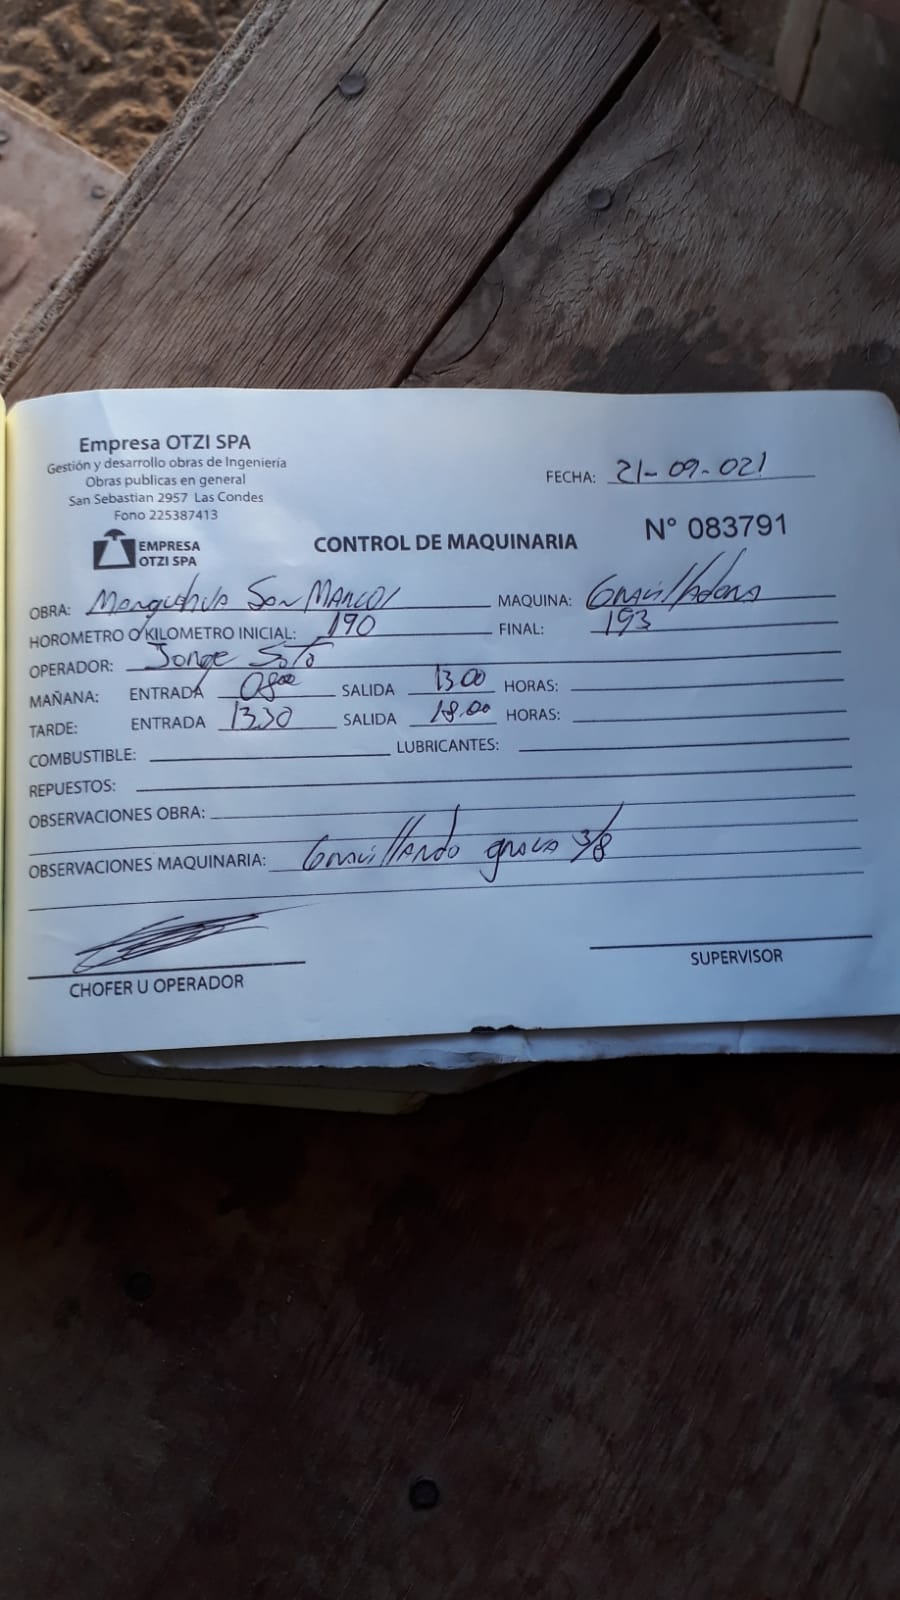 Empresa OTZI SPA
Gestión y desarrollo obras de Ingeniería
Obras publicas en general
San Sebastian 2957 Las Condes
Fono 225387413
FECHA: 21-09-021
EMPRESA
OTZI SPA
CONTROL DE MAQUINARIA
N° 083791
OBRA: San Marcos MAQUINA: Gravilladora
HOROMETRO O KILOMETRO INICIAL: 190 FINAL: 193
OPERADOR: Jorge Soto
MAÑANA: ENTRADA 08:00 SALIDA 13.00 HORAS:
TARDE: ENTRADA 13.30 SALIDA 18.00 HORAS:
COMBUSTIBLE: LUBRICANTES:
REPUESTOS:
OBSERVACIONES OBRA:
OBSERVACIONES MAQUINARIA: Gravillando grava 3/8
CHOFER U OPERADOR
SUPERVISOR